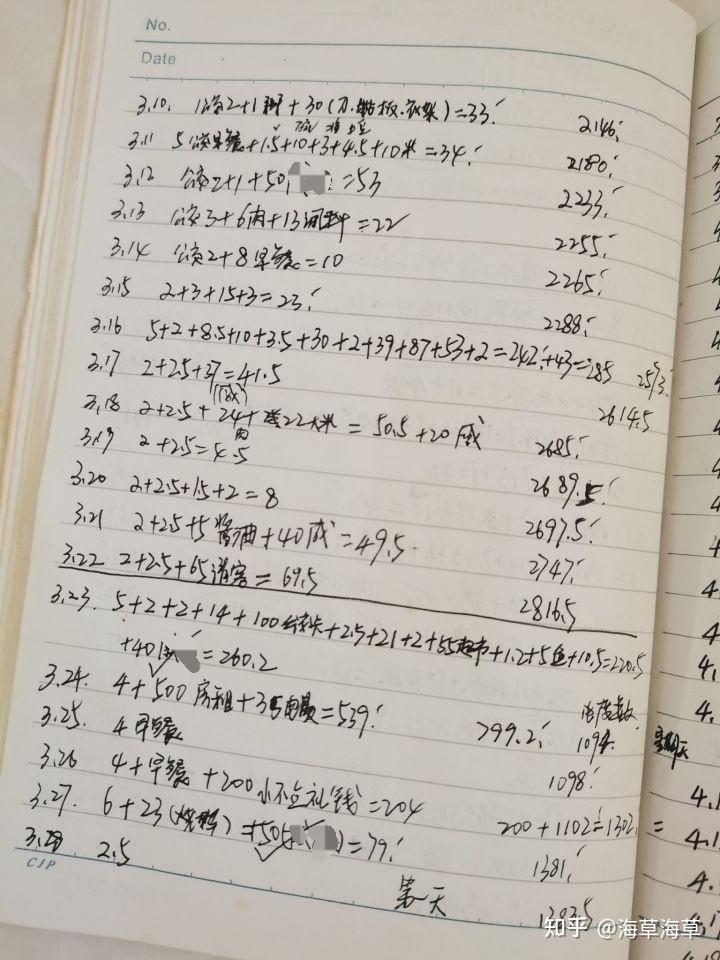 No.
Date
3.10. 公交2+1 +30(刀.粘板.衣架)=33. 2146.
3.11 5公交早餐+1.5+10+3+4.5+10米=34. 2180.
3.12 公交2+1+50 =53 2233.
3.13 公交3+6肉+13调料=22 2255.
3.14 公交2+8早餐=10 2265.
3.15 2+3+15+3=23. 2288.
3.16 5+2+8.5+10+3.5+30+2+39+87+53+2=242.+43=285 2573.
3.17 2+2.5+37=41.5 2614.5
3.18 2+2.5+24肉+22大米=50.5+20 2685.
3.19 2+2.5=4.5 2689.5.
3.20 2+2.5+1.5+2=8 2697.5.
3.21 2+2.5+5酱油+40 =49.5. 2747.
3.22 2+2.5+65请客=69.5 2816.5
3.23. 5+2+2+14+100 卡+2.5+21+2+55超市+1.2+5鱼+10.5=220.5
+40 =260.2
3.24. 4+500房租+35电费=539. 799.2.
3.25. 4早餐 1094.
3.26 4+早餐+200小不点礼钱=204 1098.
3.27. 6+23(烧烤)+50 =79. 200+1102=1302.
3.28 2.5 1381.
第一天
CJP
星期天
知乎 @海草海草